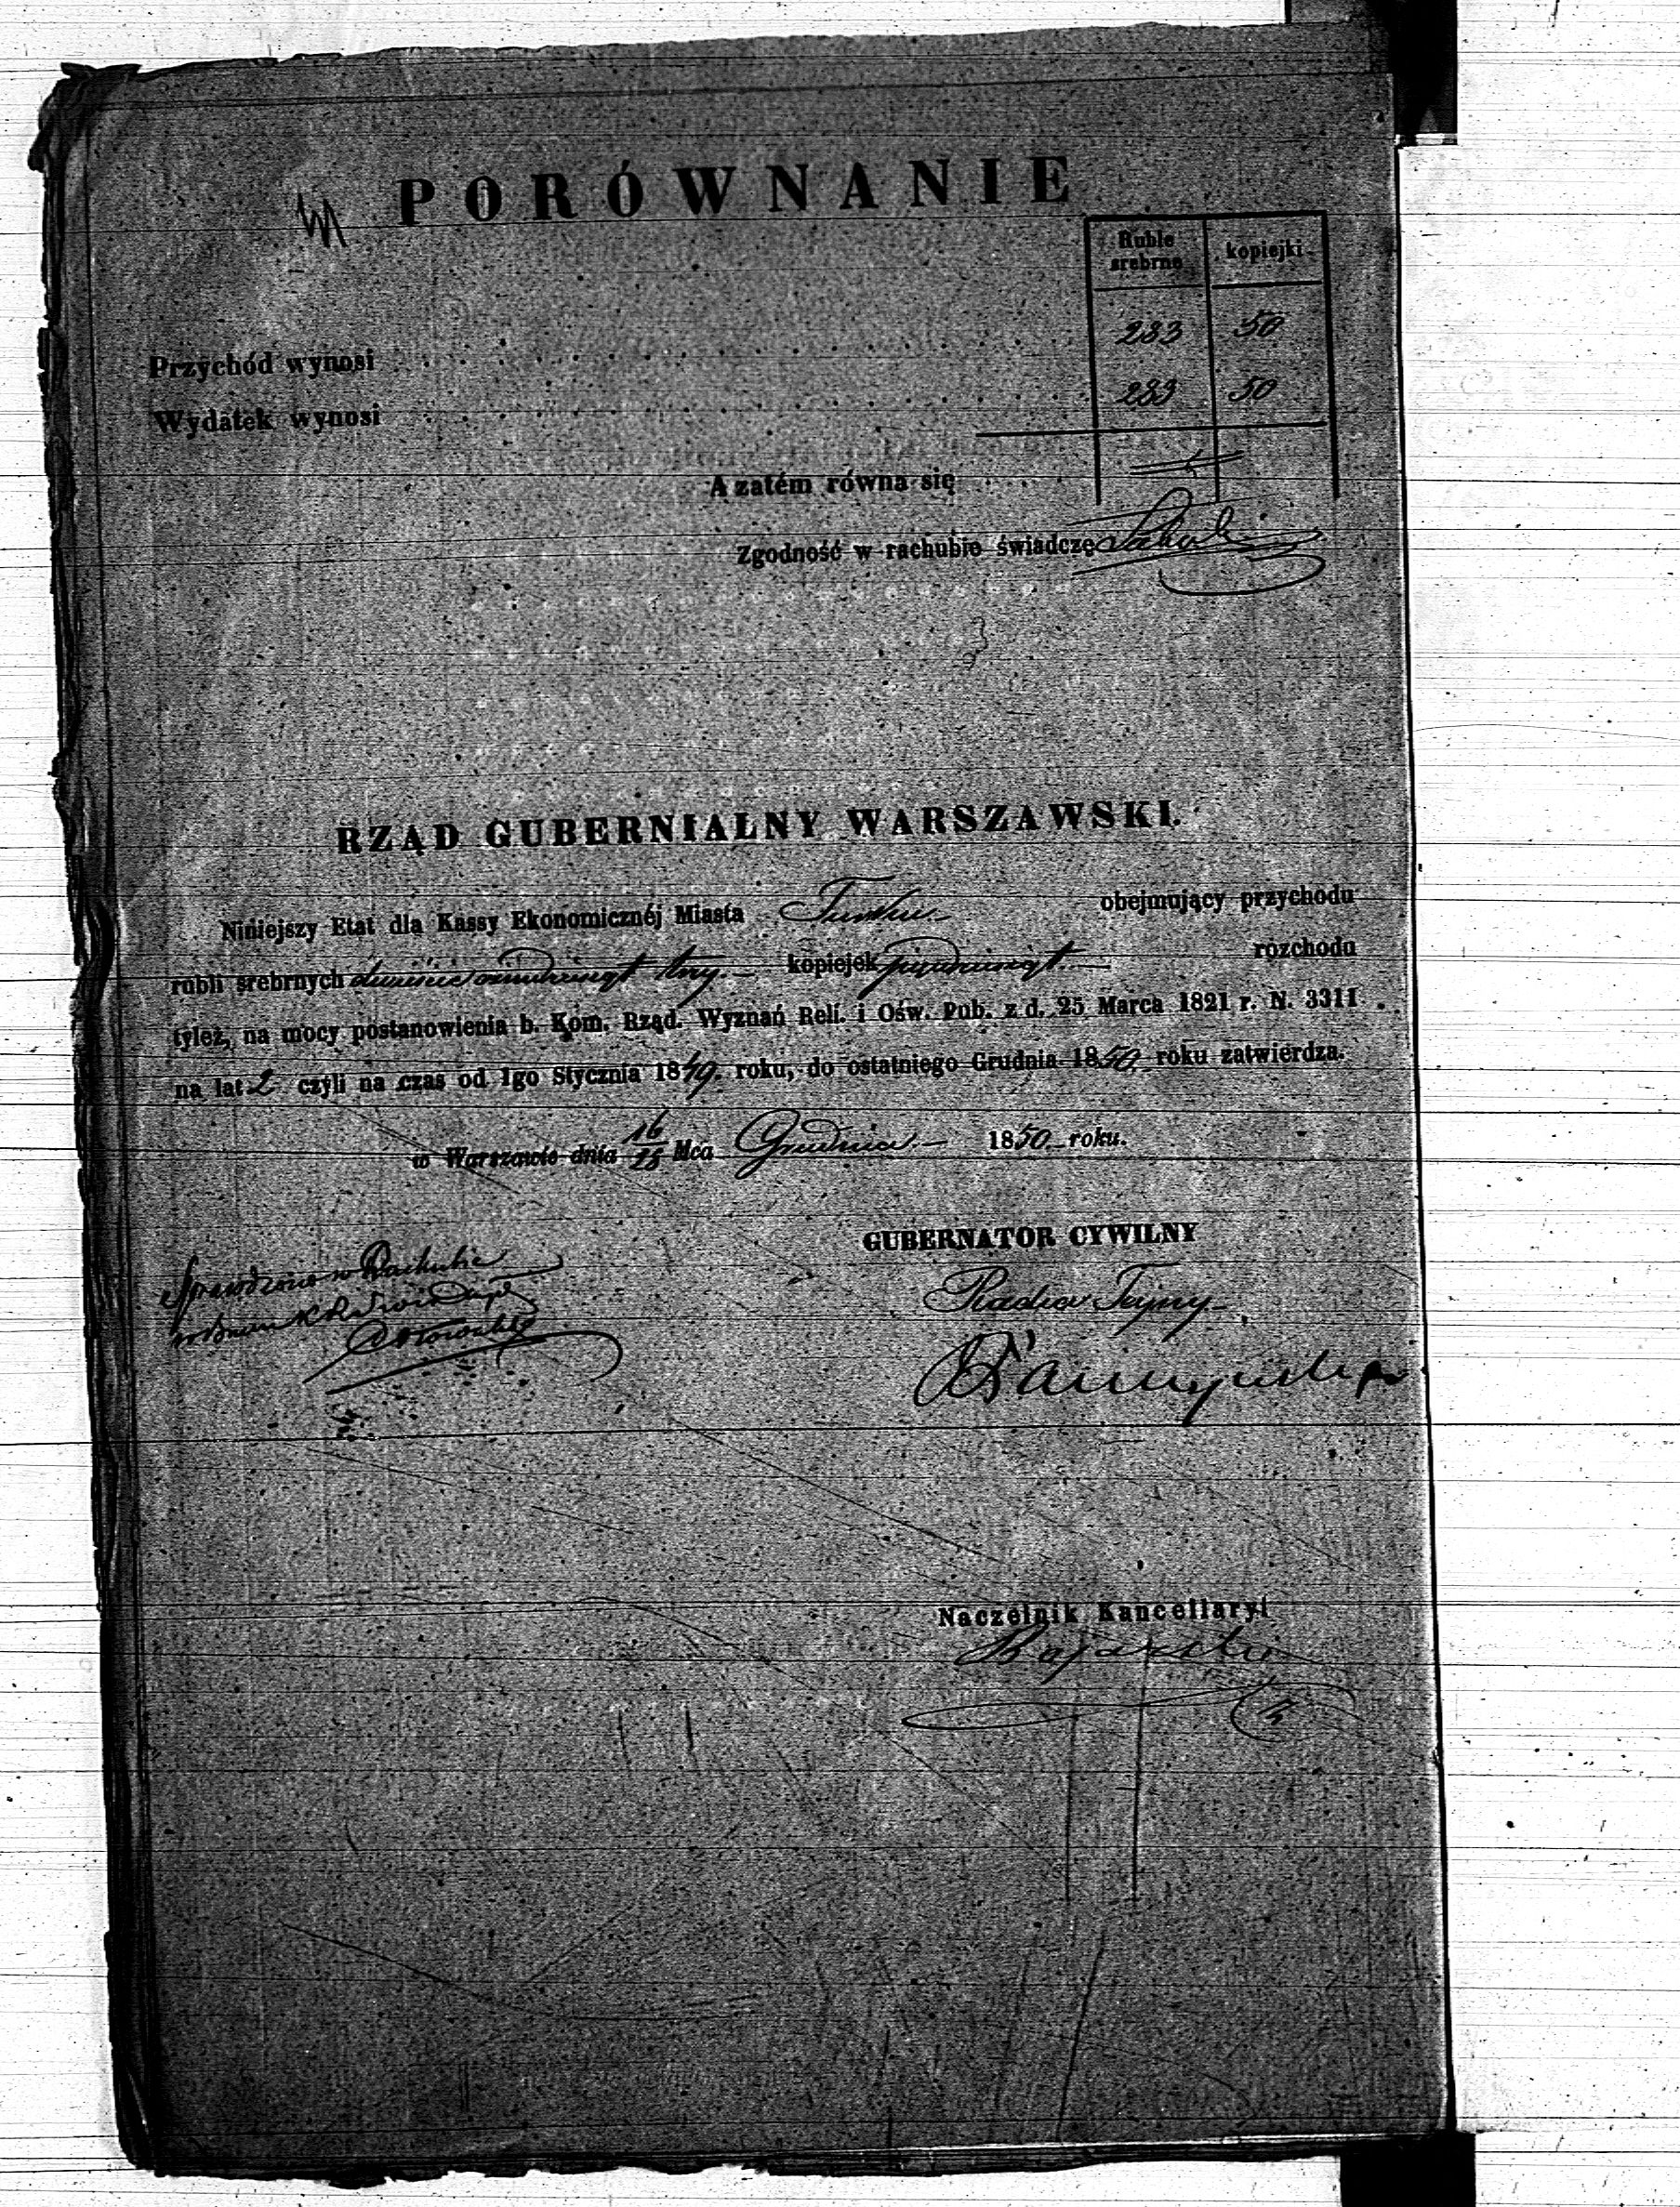 PORÓWNANIE
Ruble srebrne kopiejki
Przychód wynosi 283 50
Wydatek wynosi 283 50
A zatém równa się
Zgodność w rachubie świadczę
RZĄD GUBERNIALNY WARSZAWSKI.
Niniejszy Etat dla Kassy Ekonomicznéj Miasta obejmujący przychodu
rubli srebrnych dwieście ośmdziesiąt trzy kopiejek pięćdziesiąt rozchodu
tyleż, na mocy postanowienia b. Kom. Rząd. Wyznań Reli. i Ośw. Pub. z d. 25 Marca 1821 r. N. 3311
na lat 2 czyli na czas od 1go Stycznia 1849. roku, do ostatniego Grudnia 1850 roku zatwierdza.
w Warszawie dnia Mca Grudnia 1850 roku.
GUBERNATOR CYWILNY
Sprawdzono w Rachubie
Radca Tajny
Naczelnik Kancellaryi